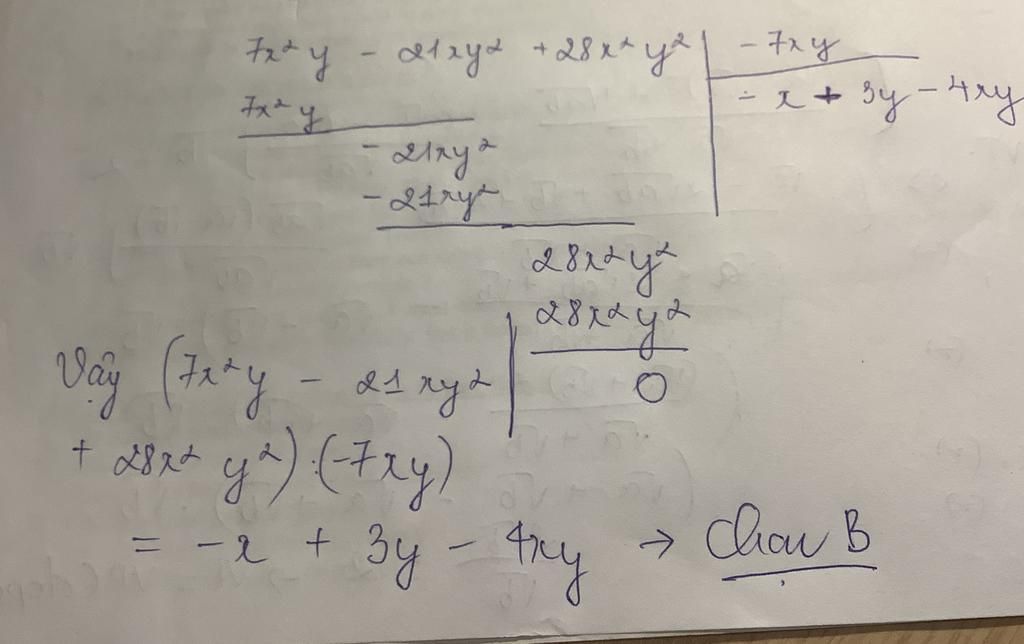 7x² y - 21xy² + 28x² y² | -7xy
7x² y - x + 3y - 4xy
- 21xy²
- 21xy²
28x² y²
28x² y²
0
Vậy (7x² y - 21 xy²
+ 28x² y²) : (-7xy)
= -x + 3y - 4xy → Chọn B